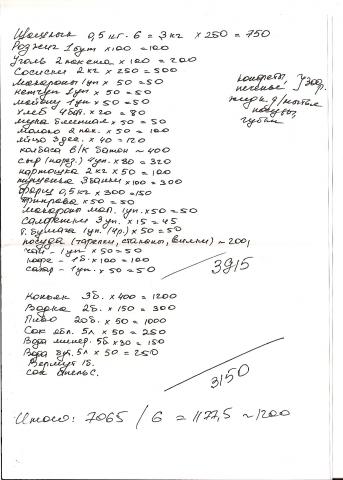 Шашлык 0,5 кг. 6 = 3 кг x 250 = 750
Розжиг 1 бут x 100 = 100
Уголь 2 пакета x 100 = 200
Сосиски 2 кг x 250 = 500
макароны 1уп x 50 = 50
кетчуп 1уп x 50 = 50
майонез 1уп x 50 = 50
хлеб 4 бат. x 20 = 80
мука блинная x 50 = 50
молоко 2 пак. x 50 = 100
яйцо 3 дес. x 40 = 120
колбаса в/к батон ~ 400
сыр (нарез.) 4уп. x 80 = 320
картошка 2 кг x 50 = 100
тушенка 3 банки x 100 = 300
фарш 0,5 кг x 300 = 150
Приправа x 50 = 50
Макароны мал. 1уп. x 50 = 50
Салфетки 3 уп. x 15 = 45
т. бумага 1уп. (4р.) x 50 = 50
посуда (тарелки, стаканы, вилки) ~ 200
чай - 1уп x 50 = 50
кофе - 1б. x 100 = 100
сахар - 1уп. x 50 = 50
конфеты,
печенье, } 300р.
жидк. д/мытья
посуды,
губки
3915
Коньяк 3б. x 400 = 1200
Водка 2б. x 150 = 300
Пиво 20б. x 50 = 1000
Сок ябл. 5л x 50 = 250
Вода минер. 5б x 30 = 150
Вода 5л x 50 = 250
Вермут 1б.
сок апельс.
3150
Итого: 7065 / 6 = 1177,5 ~ 1200